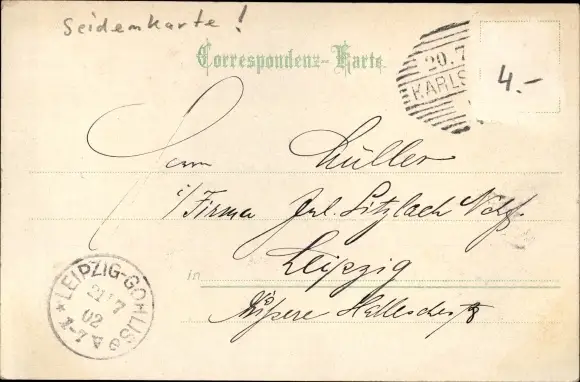 Seidenkarte!
Correspondenz-Karte
20.7
KARLS
4.-
Herrn Müller
i/Firma Jul. Sitzlach Nchf.
in Leipzig
Äußere Hallesche
LEIPZIG-GOHLIS
21 7
02